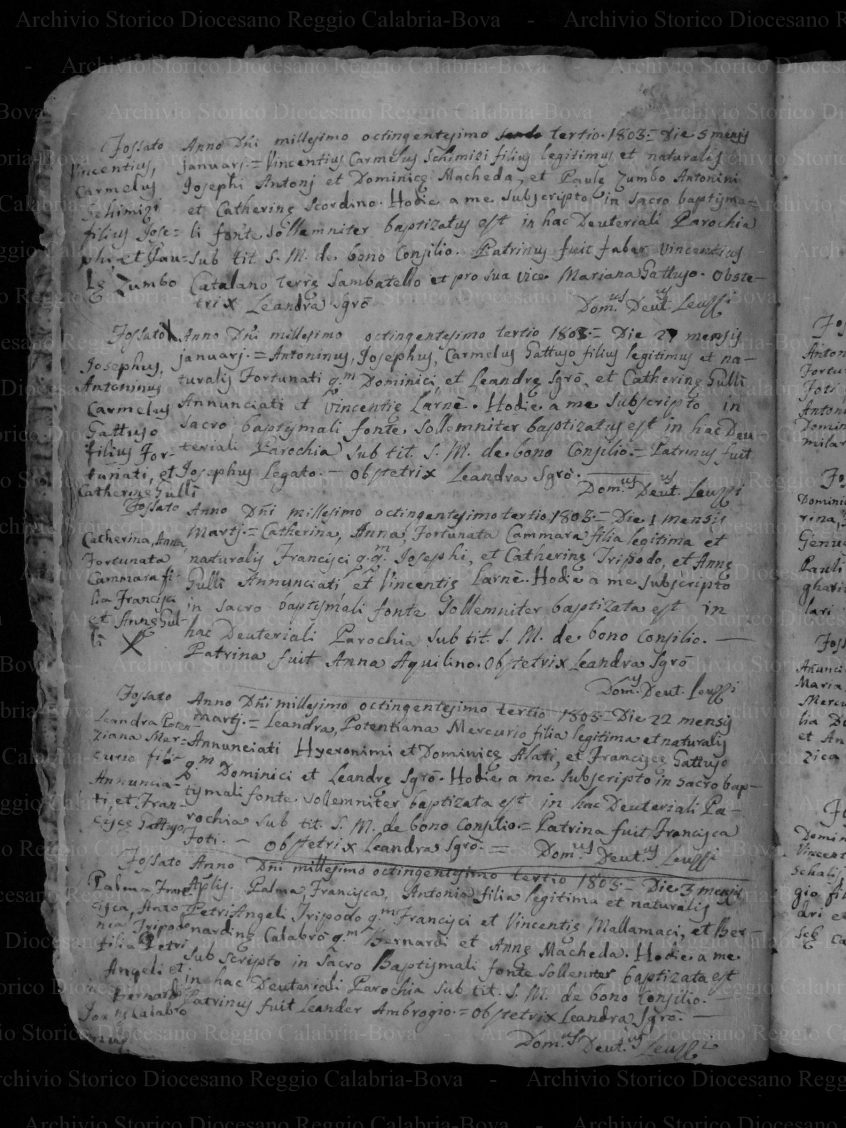 Archivio Storico Diocesano Reggio Calabria-Bova - Archivio Storico Diocesano
Fossato
Vincentius,
Carmelus
Schimizi
filius Jose-
phi, et Pau-
lę Zumbo
Anno Dñi millesimo octingentesimo tertio. 1803= Die 5 mensis
Januarj.= Vincentius Carmelus Schimizi filius legitimus et naturalis
Josephi Antonj et Dominicę Macheda, et Paulę Zumbo Antonini
et Catherinę Scordino. Hodie a me subscripto in sacro baptisma=
li fonte sollemniter baptizatus est in hac Deuteriali Parochia
sub tit. S. M. de bono Consilio. Patrinus fuit faber Vincentius
Catalano terrę Sambatello et pro sua vice Mariana Gattuso. Obste-
trix Leandra Sgrò
Dom.us Deut.us Leuzzi
Fossato X
Josephus,
Antoninus
Carmelus
Gattuso
filius For-
tunati, et
Catherinę Gullì
Anno Dñi millesimo octingentesimo tertio 1803= Die 27 mensis
Januarj.= Antoninus, Josephus, Carmelus Gattuso filius legitimus et na-
turalis Fortunati q.m Dominici et Leandrę Sgrò, et Catherinę Gullì
Annunciati et Vincentię Larnè. Hodie a me subscripto in
sacro baptismali fonte sollemniter baptizatus est in hac Deu
teriali Parochia sub tit. S. M. de bono Consilio.= Patrinus fuit
Josephus Legato.— Obstetrix Leandra Sgrò.
Dom.us Deut.us Leuzzi
Fossato
Catherina, Anna,
Fortunata
Cammara fi-
lia Francisci
et Annę Gul-
lì X
Anno Dñi millesimo octingentesimo tertio 1803= Die 1 mensis
Martj.= Catherina, Anna, Fortunata Cammara filia legitima et
naturalis Francisci q.m Josephi, et Catherinę Tripodo, et Annę
Gullì Annunciati et Vincentię Larnè. Hodie a me subscripto
in sacro baptismali fonte sollemniter baptizata est in
hac Deuteriali Parochia sub tit. S. M. de bono Consilio.—
Patrina fuit Anna Aquilino. Obstetrix Leandra Sgrò
Dom.us Deut. Leuzzi
Fossato
Leandra Poten-
ziana Mer-
curio filia
Annuncia-
ti, et Fran-
ciscę Gattuso
Anno Dñi millesimo octingentesimo tertio 1803= Die 22 mensis
Martj.= Leandra, Potentiana Mercurio filia legitima et naturalis
Annunciati Hyeronimi et Dominicę Alati, et Franciscę Gattuso
q.m Dominici et Leandrę Sgrò. Hodie a me subscripto in sacro bap-
tismali fonte sollemniter baptizata est in hac Deuteriali Pa-
rochia sub tit. S. M. de bono Consilio.= Patrina fuit Francisca
Foti.— Obstetrix Leandra Sgrò.= Dom.us Deut.us Leuzzi
Fossato
Palma Fran-
cisca, Anto
nia Tripodo
filia Petri
Angeli et
Bernardi
Calabrò
Anno Dñi millesimo octingentesimo tertio 1803= Die 3 mensis
Aplis. Palma, Francisca, Antonia filia legitima et naturalis
Petri Angeli Tripodo q.m Francisci et Vincentię Mallamaci, et Ber-
nardinę Calabrò q.m Bernardi et Annę Macheda. Hodie a me
subscripto in sacro Baptismali fonte sollemniter baptizata est
in hac Deuteriali Parochia sub tit. S. M. de bono Consilio.—
Patrinus fuit Leander Ambrogio.= Obstetrix Leandra Sgrò.—
Dom.us Deut.us Leuzzi